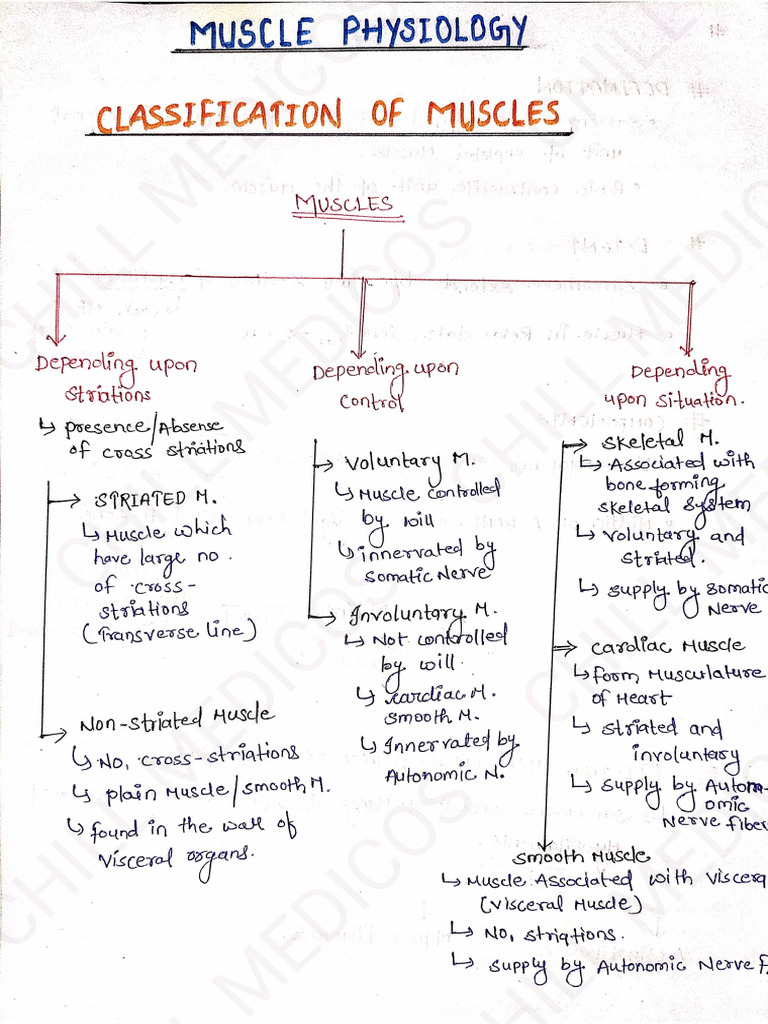 MUSCLE PHYSIOLOGY
CLASSIFICATION OF MUSCLES
MUSCLES
Depending upon
striations
↳ presence/Absense
of cross striations
→ STRIATED M.
↳ Muscle which
have large no.
of cross-
striations
(Transverse line)
→ Non-striated Muscle
↳ No, cross-striations
↳ plain Muscle/smooth M.
↳ found in the wall of
visceral organs.
Depending upon
control
→ Voluntary M.
↳ Muscle controlled
by will
↳ innervated by
somatic Nerve
→ Involuntary M.
↳ Not controlled
by will.
↳ cardiac M.
smooth M.
↳ Innervated by
Autonomic N.
Depending
upon situation.
→ Skeletal M.
↳ Associated with
bone forming
skeletal system
↳ voluntary and
striated.
↳ supply by somatic
Nerve
→ cardiac Muscle
↳ form Musculature
of Heart
↳ striated and
involuntary
↳ supply by Autono-
omic
Nerve fiber
smooth Muscle
↳ Muscle Associated with viscera
(visceral Muscle)
↳ No, striations.
↳ supply by Autonomic Nerve f.
CHILL MEDICOS